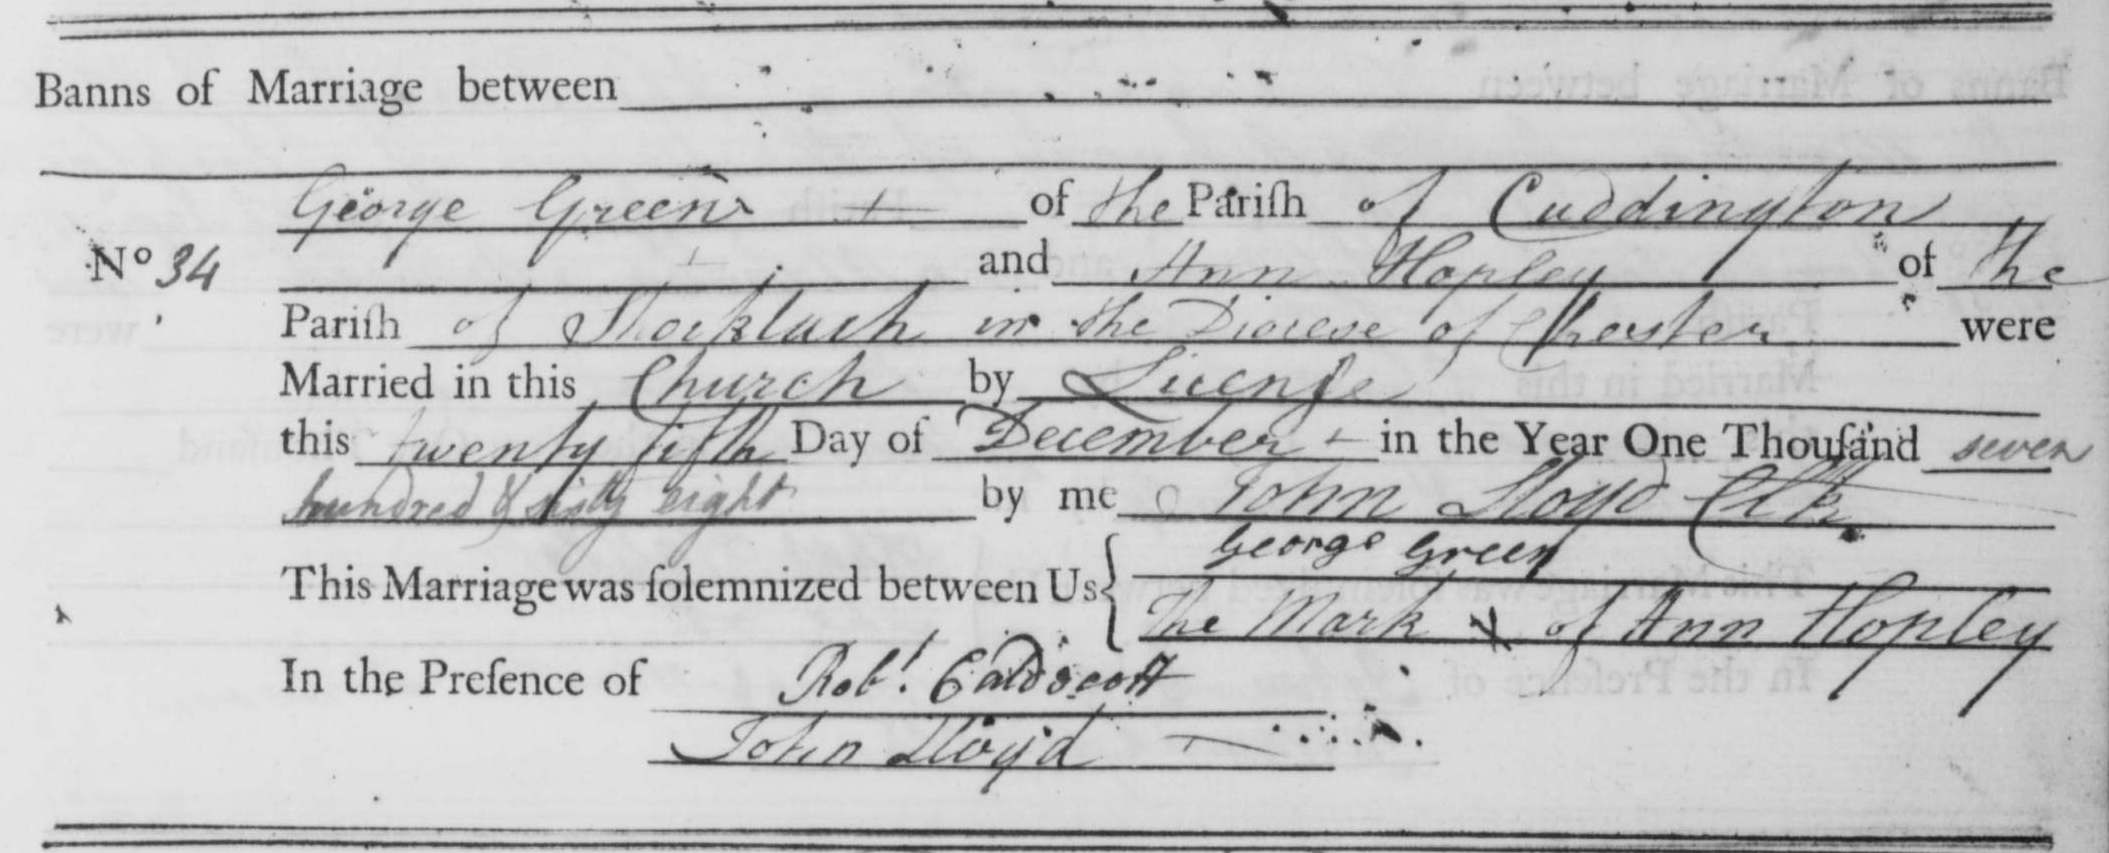 Banns of Marriage between
George Green of the Pariſh of Cuddington
No 34 and Ann Hopley of the
Pariſh of Shocklach in the Diocese of Chester were
Married in this Church by Licenſe
this twenty fifth Day of December in the Year One Thouſand seven
hundred & sixty eight by me John Lloyd Clk
This Marriage was ſolemnized between Us { George Green
The Mark X of Ann Hopley
In the Preſence of Robt. Caldecott
John Lloyd